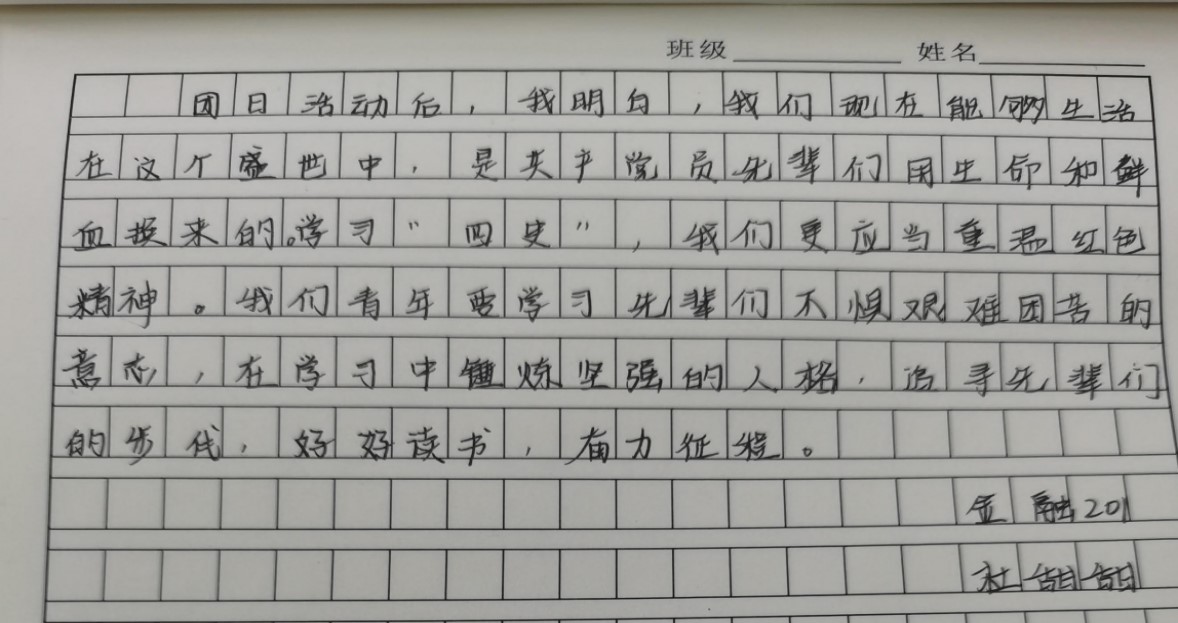 班级 姓名
团日活动后，我明白，我们现在能够生活
在这个盛世中，是共产党员先辈们用生命和鲜
血换来的。学习“四史”，我们更应当重温红色
精神。我们青年要学习先辈们不惧艰难困苦的
意志，在学习中锤炼坚强的人格，追寻先辈们
的步伐，好好读书，奋力征程。
金融201
杜甜甜